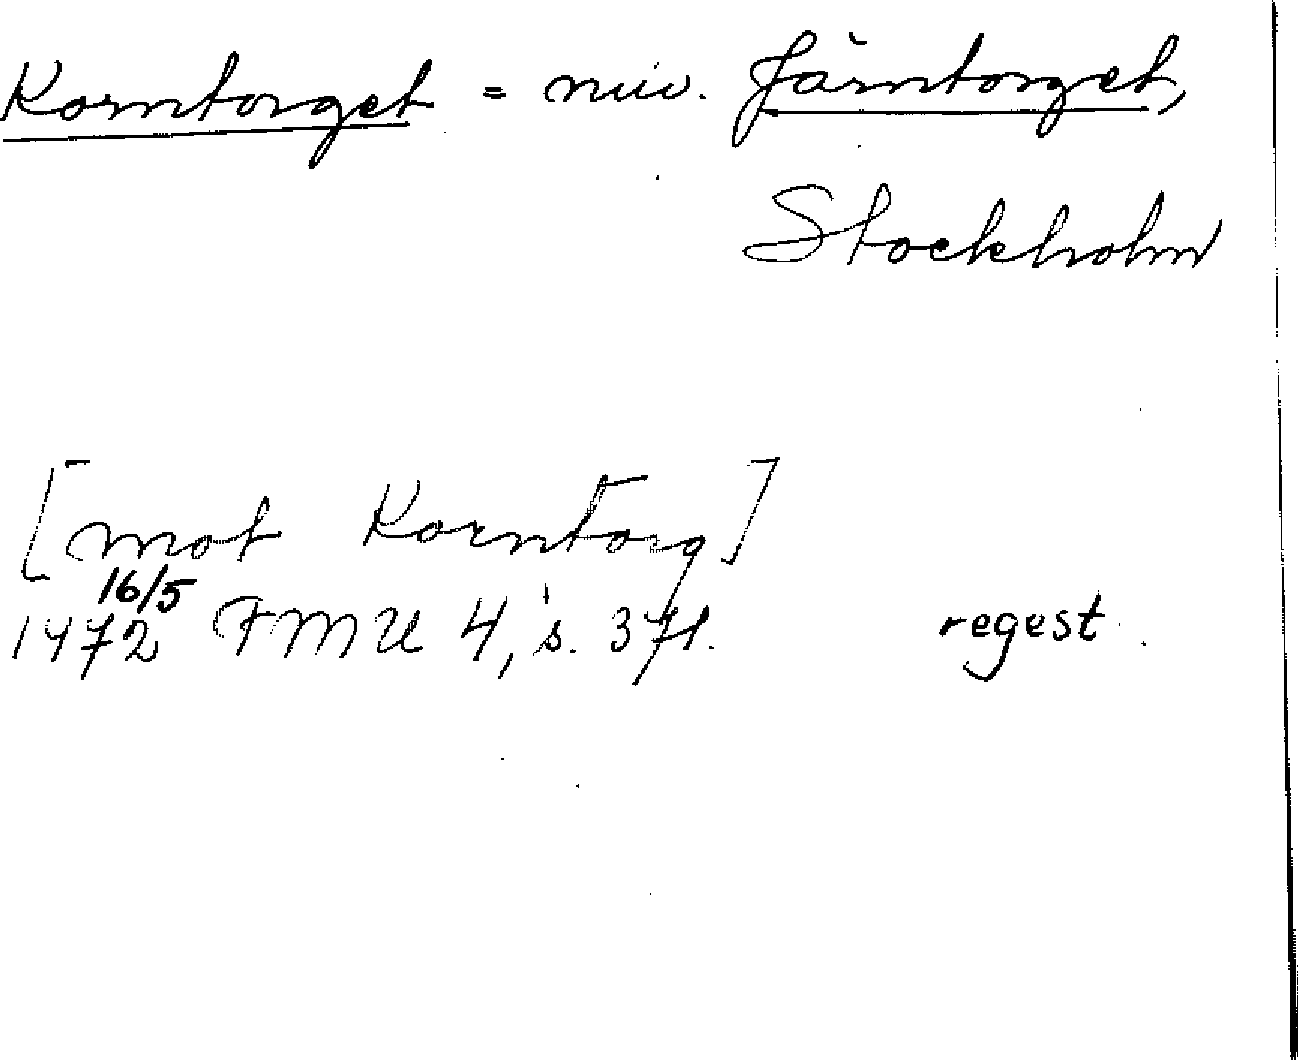 Korntorget = nuv. Järntorget,
Stockholm
[mot Korntorg]
16/5
1472 FMU 4, s. 371. regest.